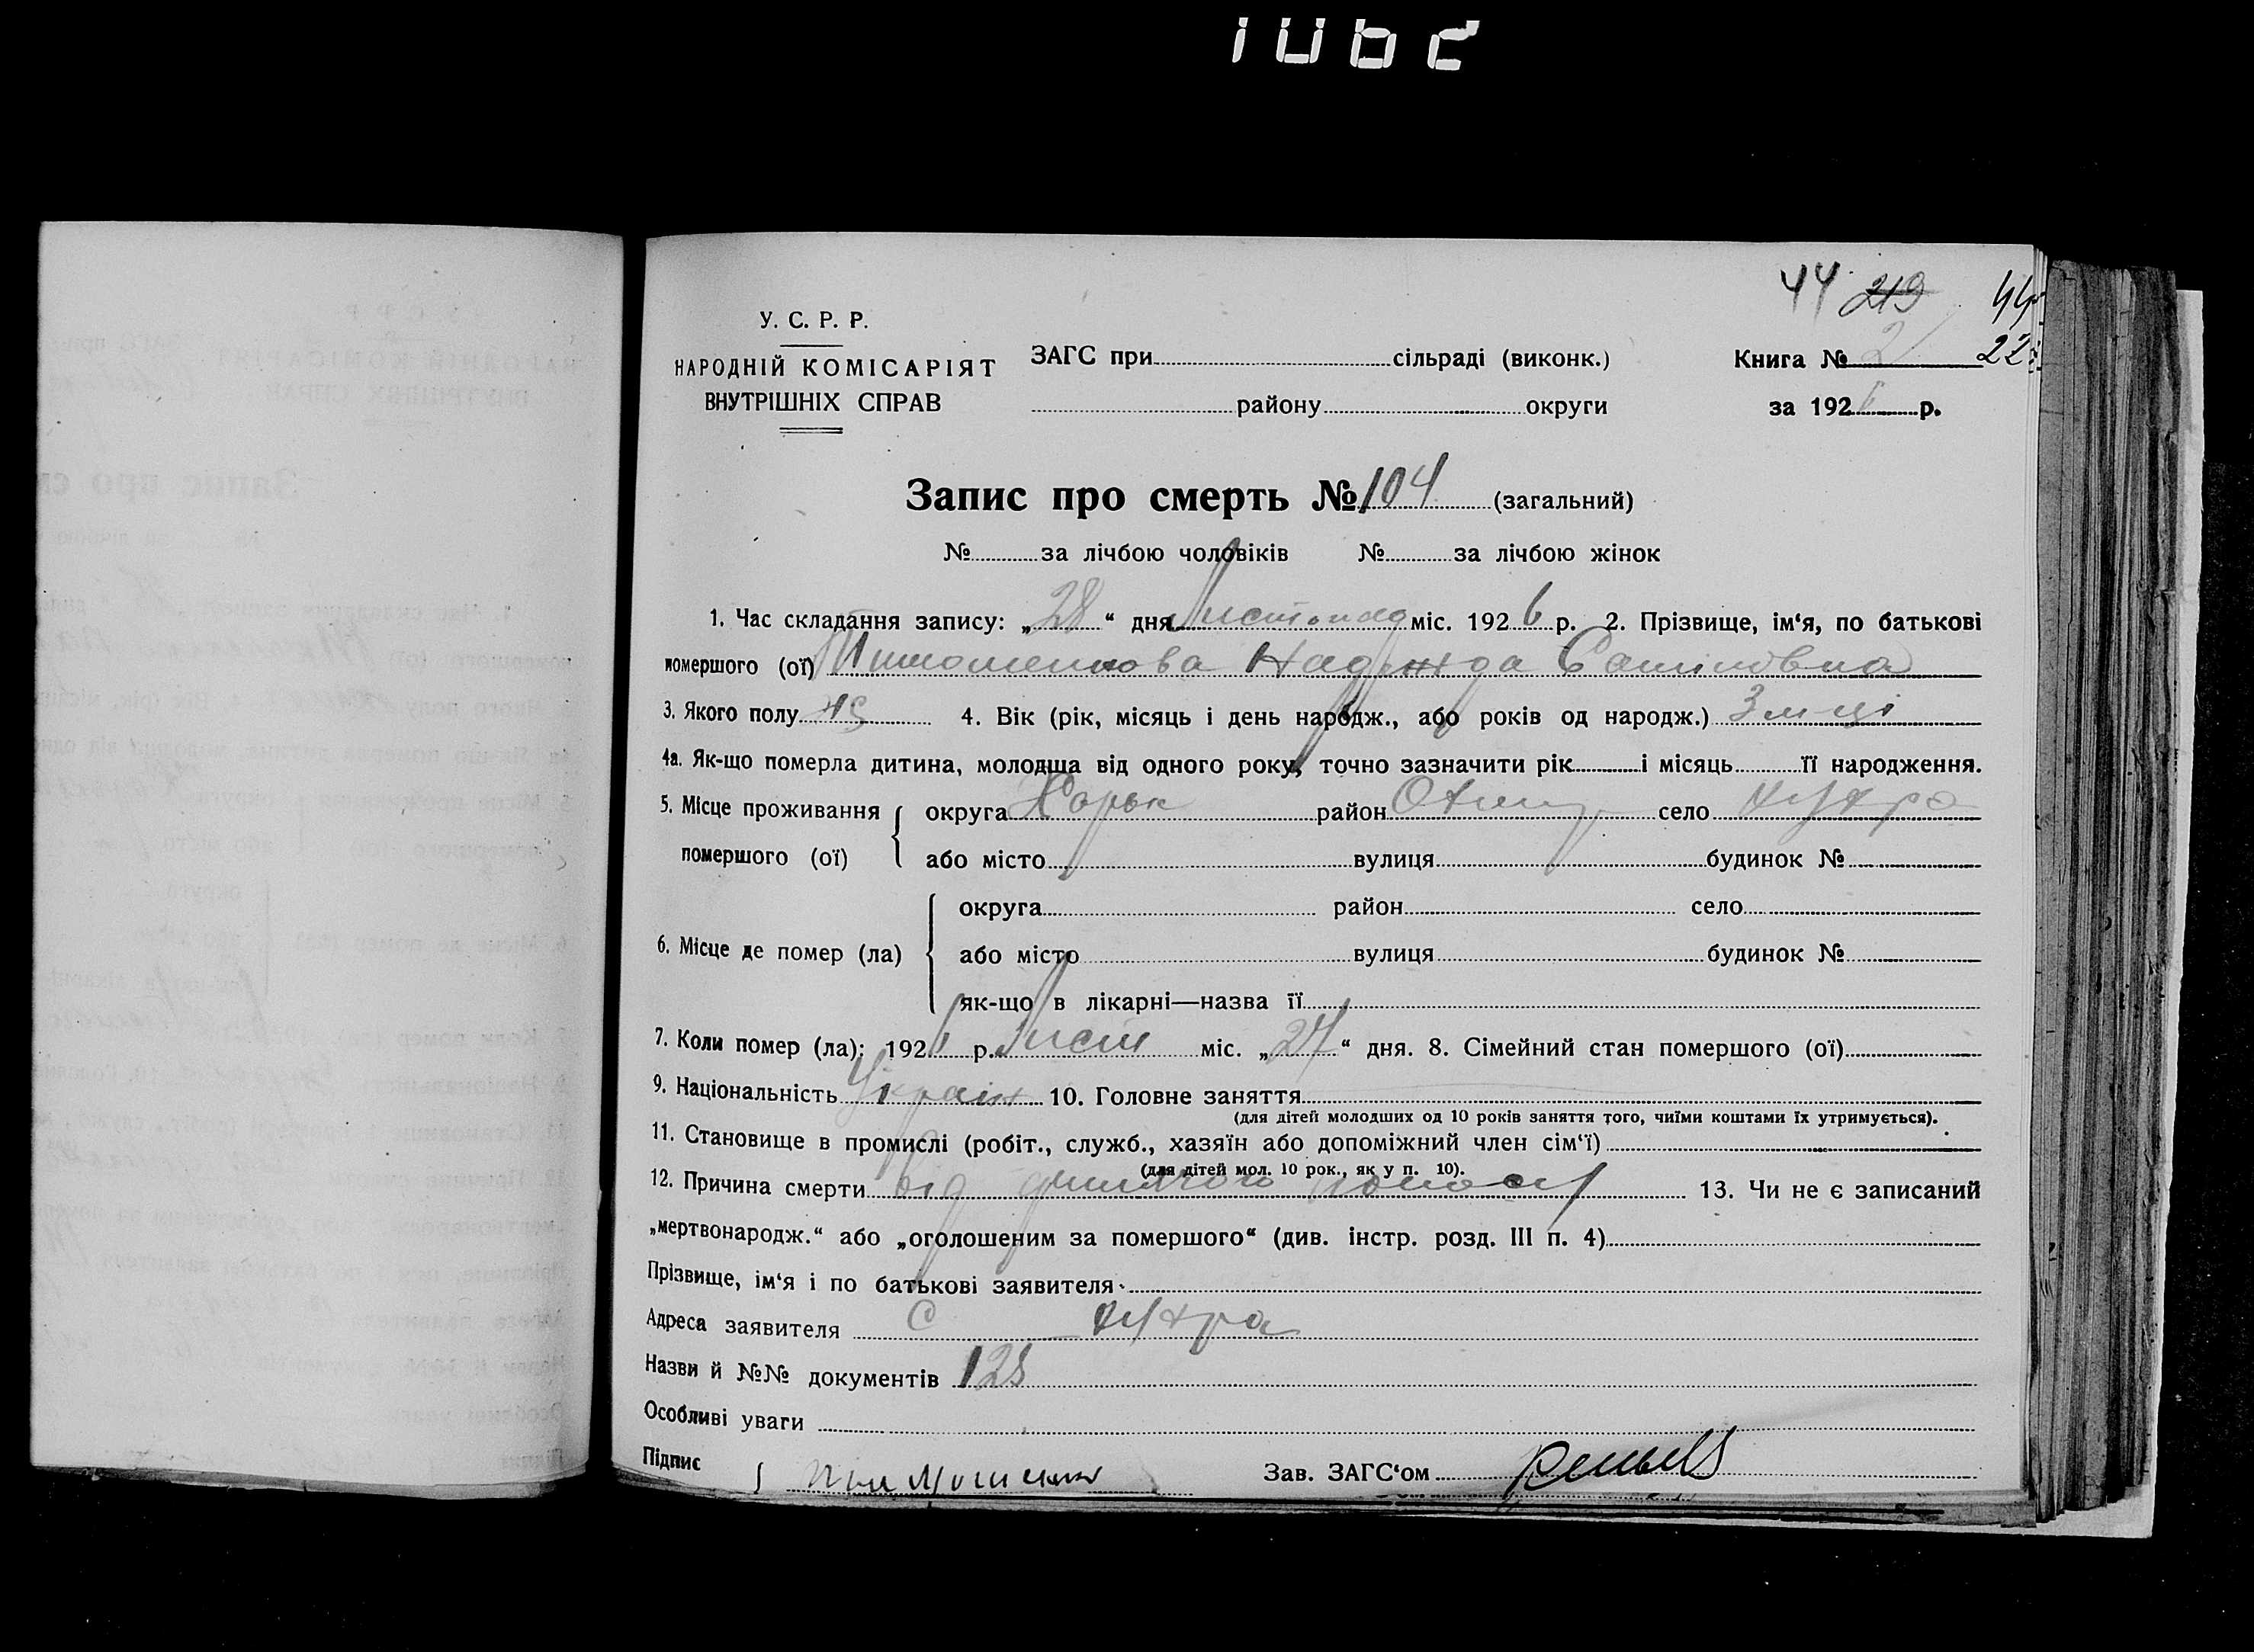 1062
44 219 44
У. С. Р. Р.
НАРОДНІЙ КОМІСАРІЯТ ЗАГС при сільраді (виконк.) Книга № 2 22
ВНУТРІШНІХ СПРАВ району округи за 1926 р.
Запис про смерть № 104 (загальний)
№ за лічбою чоловіків № за лічбою жінок
1. Час складання запису: „28“ дня Листопад міс. 1926 р. 2. Прізвище, ім‘я, по батькові
помершого (ої) Надежда
3. Якого полу 4. Вік (рік, місяць і день народж., або років од народж.) 3 м-ці
4а. Як-що померла дитина, молодща від одного року, точно зазначити рік і місяць її народження.
5. Місце проживання округа Харьк район село
помершого (ої) або місто вулиця будинок №
округа район село
6. Місце де помер (ла) або місто вулиця будинок №
як-що в лікарні—назва її
7. Коли помер (ла): 1926 р. Лист міс. „27“ дня. 8. Сімейний стан помершого (ої)
9. Національність Україн 10. Головне заняття
(для дітей молодших од 10 років заняття того, чиїми коштами їх утримується).
11. Становище в промислі (робіт., служб., хазяїн або допоміжний член сім‘ї)
(для дітей мол. 10 рок., як у п. 10).
12. Причина смерти від поносу 13. Чи не є записаний
„мертвонародж.“ або „оголошеним за помершого“ (див. інстр. розд. III п. 4)
Прізвище, ім‘я і по батькові заявителя
Адреса заявителя с
Назви й №№ документів 128
Особливі уваги
Підпис Зав. ЗАГС‘ом